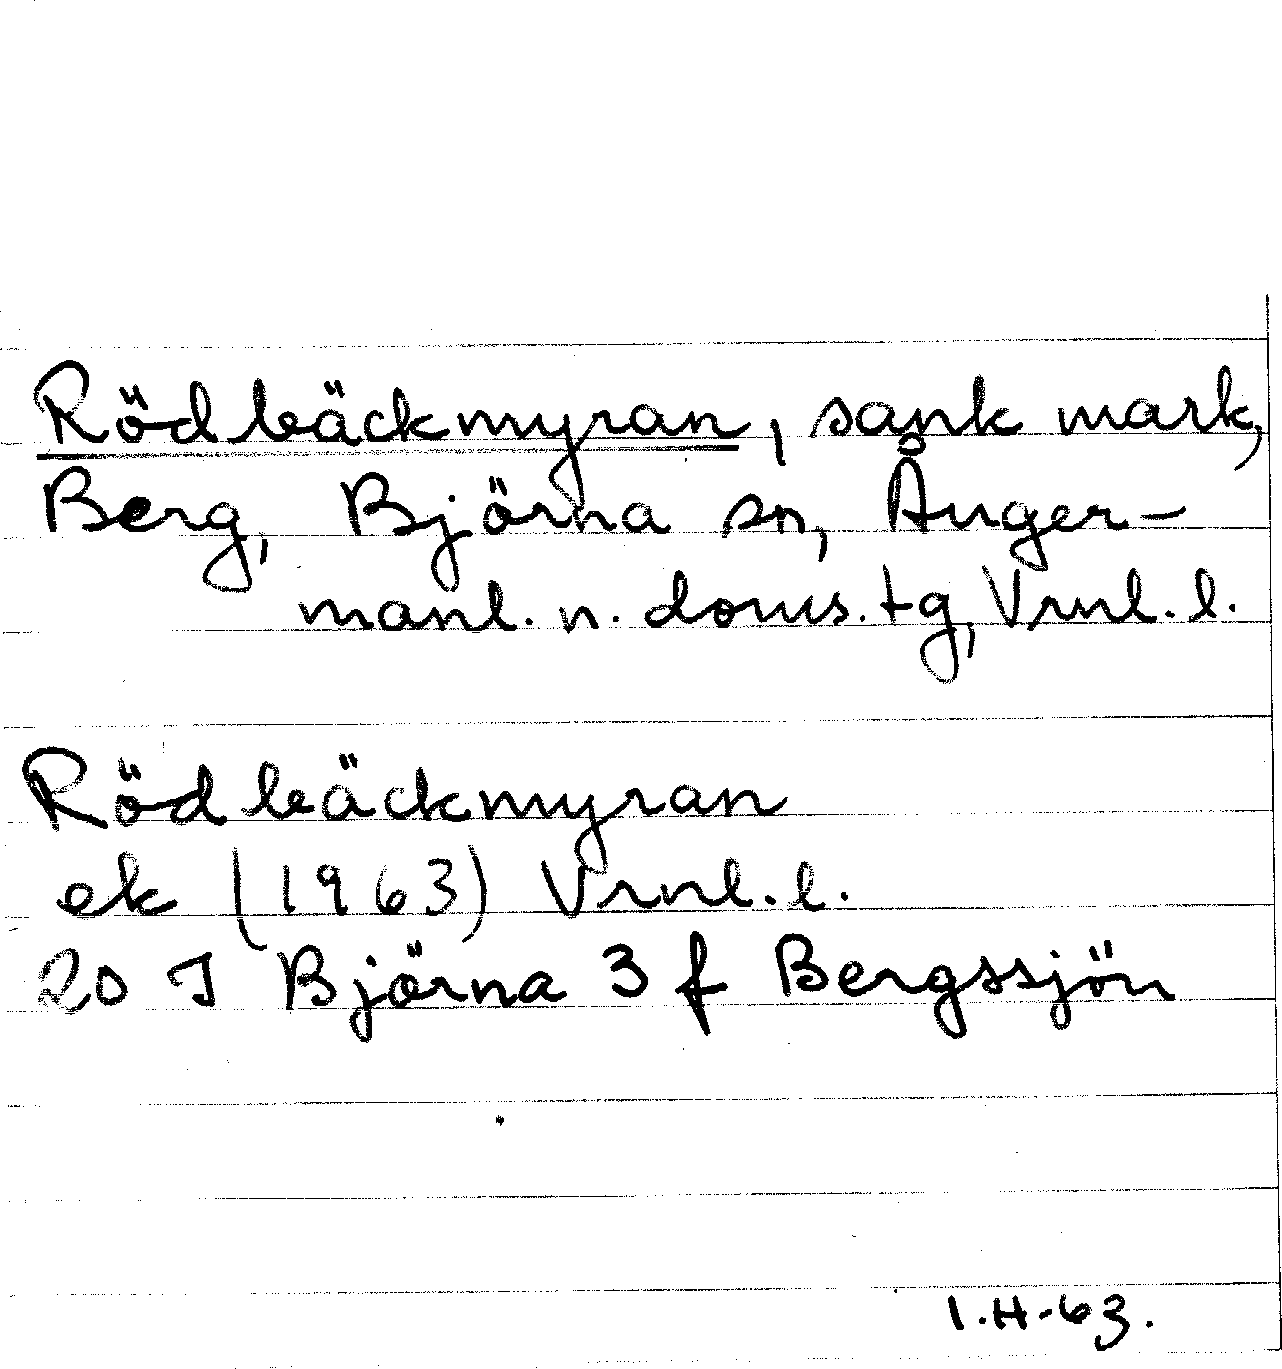 Rödbäckmyran, sank mark,
Berg, Björna sn, Ånger-
manl. n. doms. tg, Vrnl. l.
Rödbäckmyran
ek (1963) Vrnl. l.
20 J Björna 3 f Bergssjön
I.H-63.